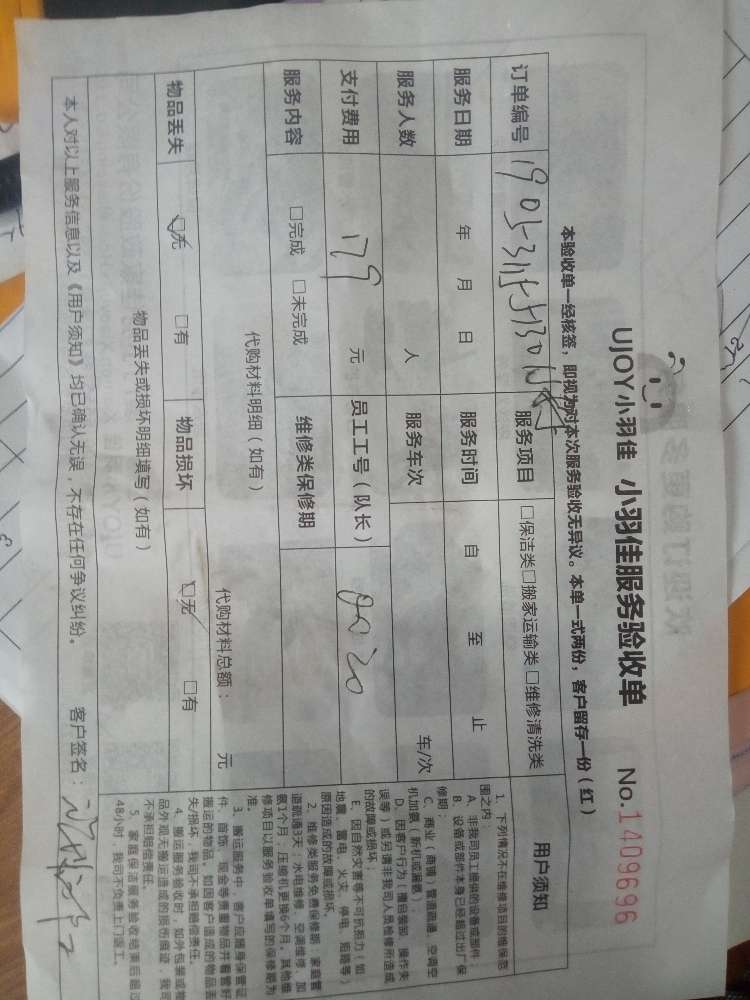 UJOY小羽佳 小羽佳服务验收单 No.1409696
本验收单一经核签，即视为对本次服务验收无异议。本单一式两份，客户留存一份（红）
订单编号 服务项目 □保洁类□搬家运输类□维修清洗类
服务日期 年 月 日 服务时间 自 至 止
服务人数 人 服务车次 车/次
支付费用 179 元 员工工号（队长）
服务内容 □完成 □未完成 维修类保修期
代购材料明细（如有） 代购材料总额： 元
物品丢失 □无 □有 物品损坏 □无 □有
物品丢失或损坏明细填写（如有）
本人对以上服务信息以及《用户须知》均已确认无误，不存在任何争议纠纷。 客户签名：
用户须知
1、下列情况不在维修项目的维保范
围之内
A、非我司员工提供的设备或部件；
B、设备或部件本身已经超过出厂保
修期；
C、商业（商铺）管道疏通、空调空
机加氨（新机或漏氨）；
D、因客户行为（擅自装卸、操作失
误等）或另请非我司人员检修所造成
的故障或损坏；
E、因自然灾害等不可抗拒力（如：
地震、雷电、火灾、停电、短路等）
原因造成的故障或损坏。
2、维修类服务免费保修期：家庭管
道疏通3天；水电维修、空调维修、加
氨1个月；压缩机更换6个月。其他维
修项目以服务验收单填写的保修期为
准。
3、搬运服务中，客户应随身保管证
件、首饰、现金等贵重物品并看管好
搬运的物品。如因客户造成的物品丢
失/损坏，我司不承担赔偿责任。
4、搬运服务验收时，如外包装或物
品外观无搬运造成的损伤痕迹，我司
不承担赔偿责任。
5、家庭保洁服务验收结束后超过
48小时，我司不负责上门返工。